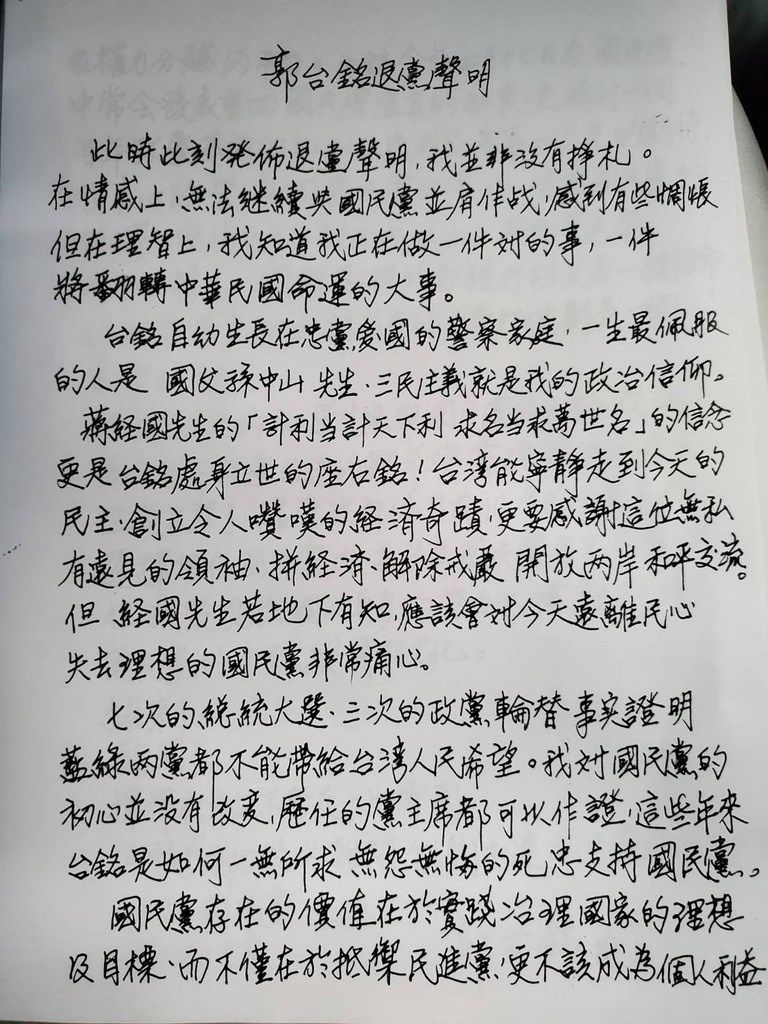 郭台銘退黨聲明
此時此刻発佈退黨聲明，我並非没有掙札。
在情感上，無法継續與國民黨並肩作战，感到有些惆悵
但在理智上，我知道我正在做一件对的事，一件
將翻轉中華民國命運的大事。
台銘自幼生長在忠黨愛國的警察家庭，一生最佩服
的人是 國父孫中山 先生、三民主義就是我的政治信仰。
蔣経國先生的「計利当計天下利 求名当求萬世名」的信念
更是台銘處身立世的座右銘！台湾能寧静走到今天的
民主、創立令人嚽嘆的経済奇蹟，更要感謝這位無私
有遠見的領袖、拼経済、解除戒嚴 開放两岸和平交流。
但 経國先生若地下有知，應該會对今天遠離民心
失去理想的國民黨非常痛心。
七次的総統大選、三次的政黨輪替 事实證明
藍綠两黨都不能帶給台湾人民希望。我对國民黨的
初心並没有改変，歷任的黨主席都可以作證，這些年來
台銘是如何一無所求 無怨無悔的死忠支持國民黨。
國民黨存在的價值在於實踐治理國家的理想
及目標、而不僅在於抵禦民進黨，更不該成為個人利益